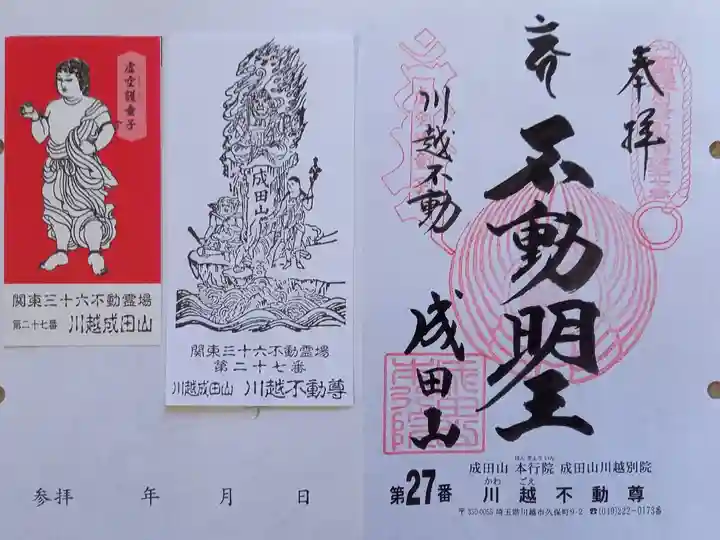 虚空護童子
関東三十六不動霊場
第二十七番 川越成田山
成田山
関東三十六不動霊場
第二十七番
川越成田山 川越不動尊
参拝 年 月 日
奉拝
不動明王
川越不動
成田山
成田山 本行院 成田山川越別院
ほん ぎょう いん
かわ ごえ
第27番 川越不動尊
〒350-0055 埼玉県川越市久保町9-2 ☎(049)222-0173番